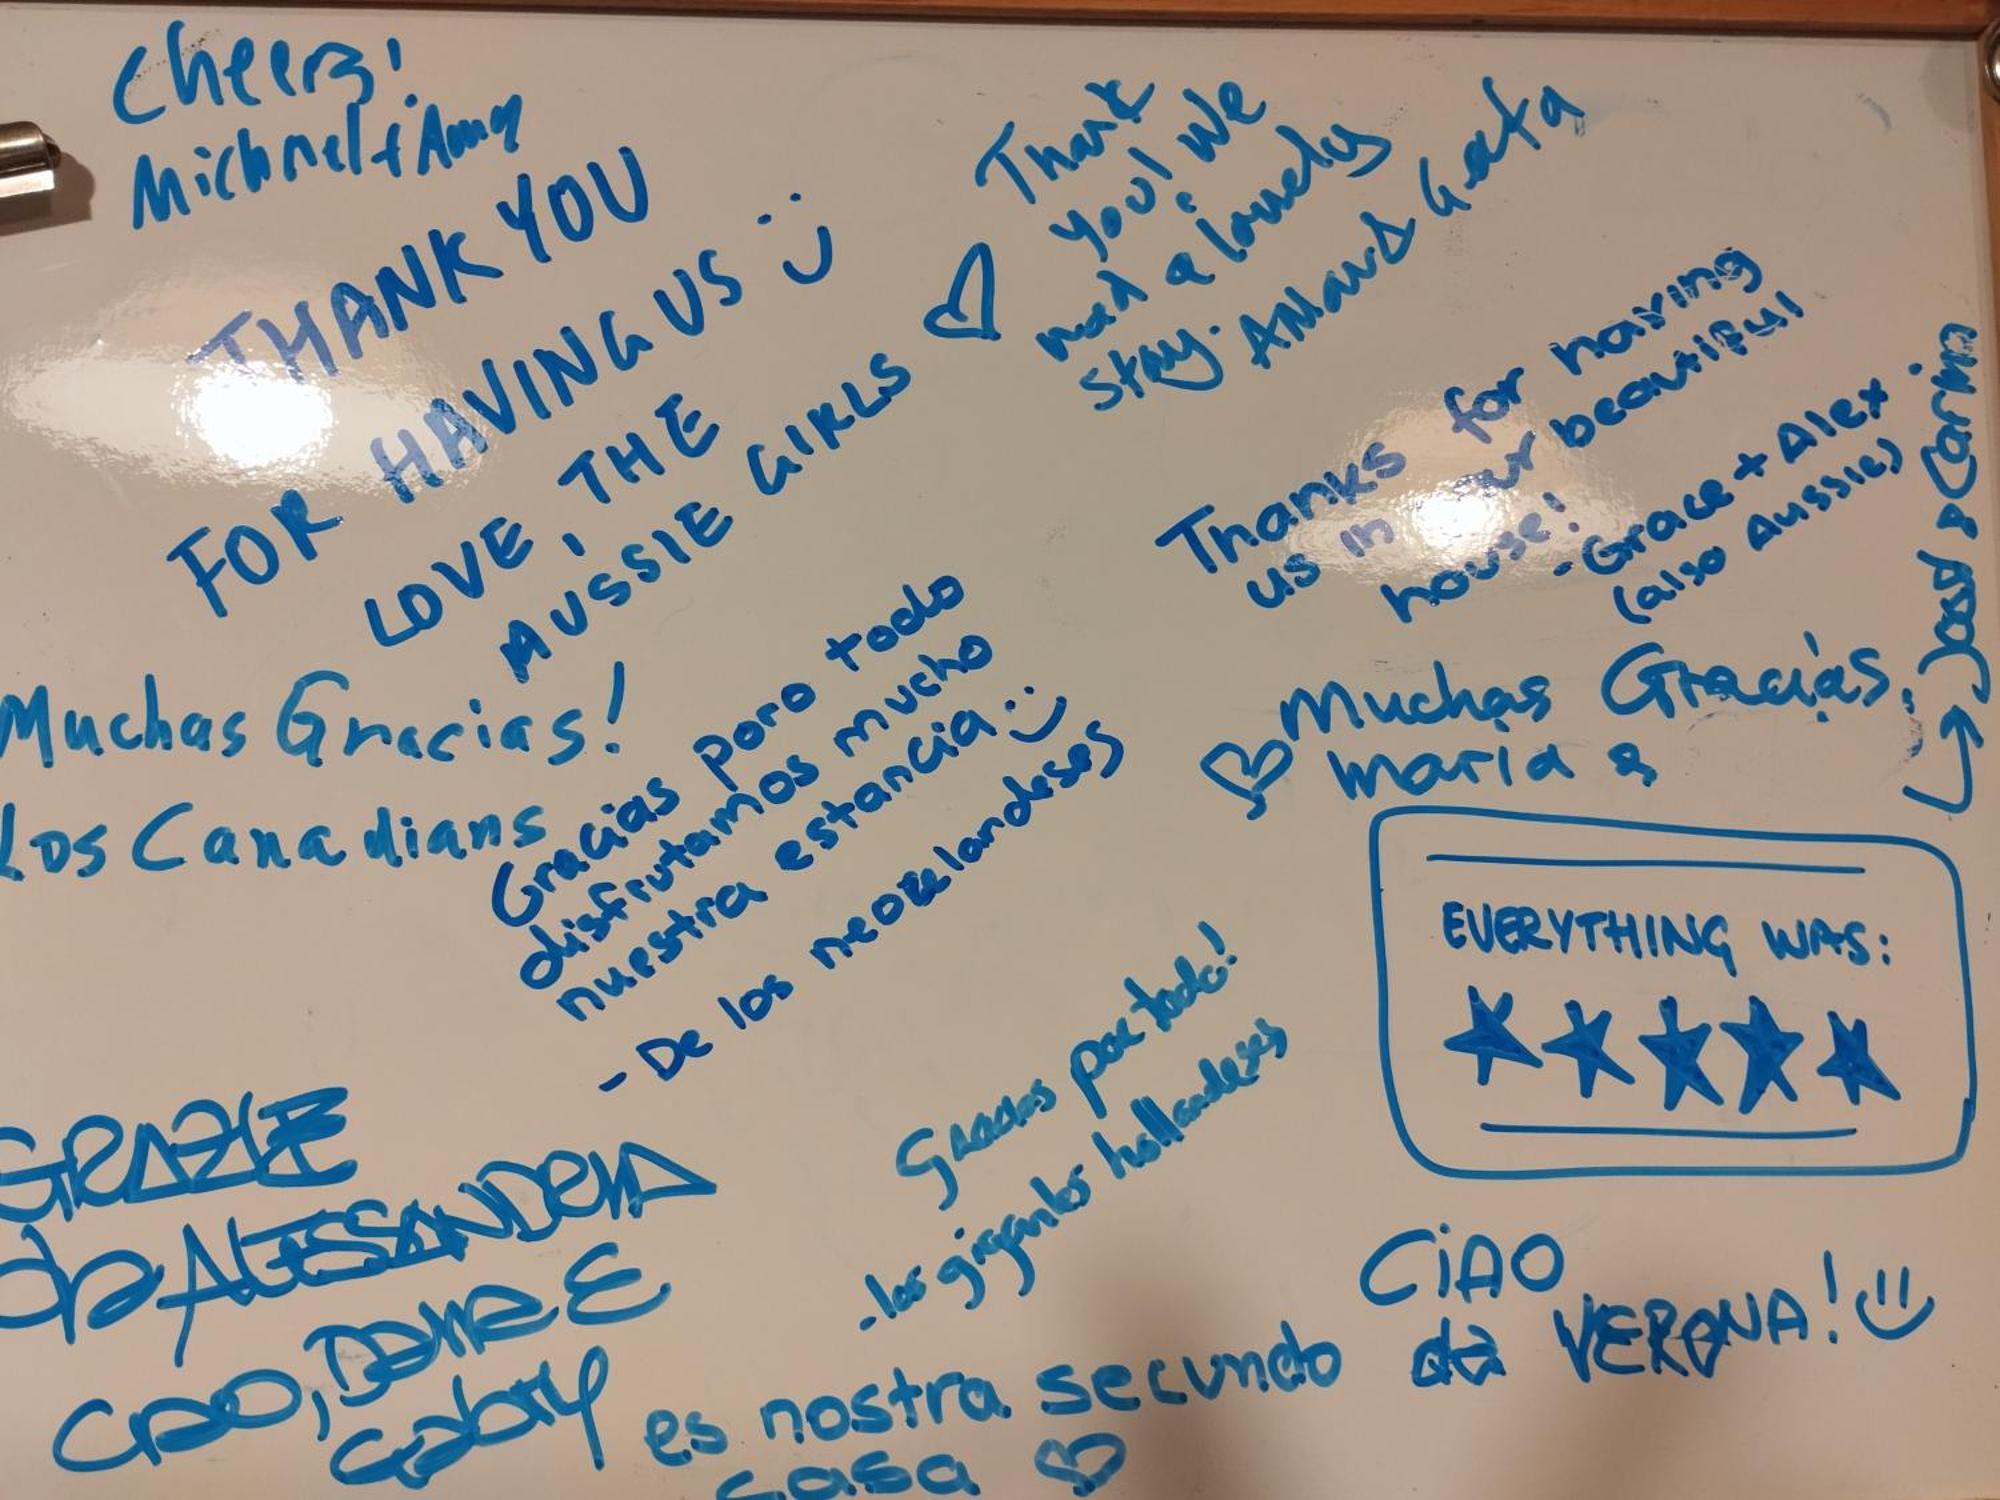 Cheers!
Michael + Amy
THANK YOU
FOR HAVING US
LOVE, THE
AUSSIE GIRLS
Thank
you! We
had a lovely
stay.
Thanks for having
us in your beautiful
house!
- Grace + Alex
(also Aussie)
Muchas Gracias!
Los Canadians
Gracias poro todo
disfrutamos mucho
nuestra estancia
- De los neozelandeses
Muchas Gracias,
Maria &
José & Carmin
EVERYTHING WAS:
Gracias por todo!
- los gigantes hollandeses
GRAZIE
da ALESSANDRIA
CIAO,
Gabry
CiAO
da VERONA!
es nostra secundo
casa